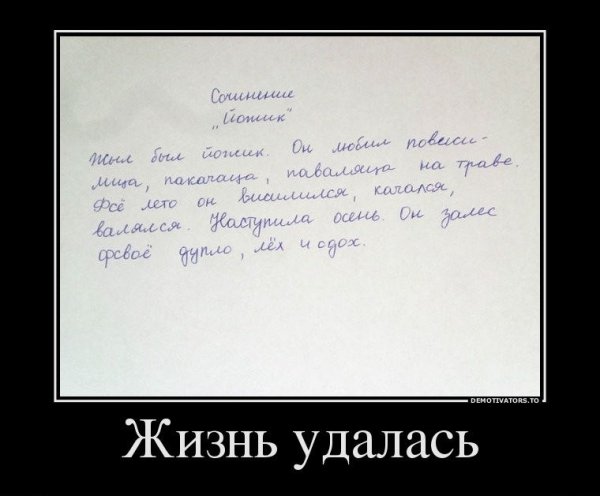 Сочинение
„Йожик"
Жыл был йожик. Он любил повеси-
лица, пакачаца, паваляца на траве.
Фсё лето он висилился, качался,
валялся. Наступила осень. Он залес
фсваё дупло, лёх и сдох.
DEMOTIVATORS.TO
Жизнь удалась